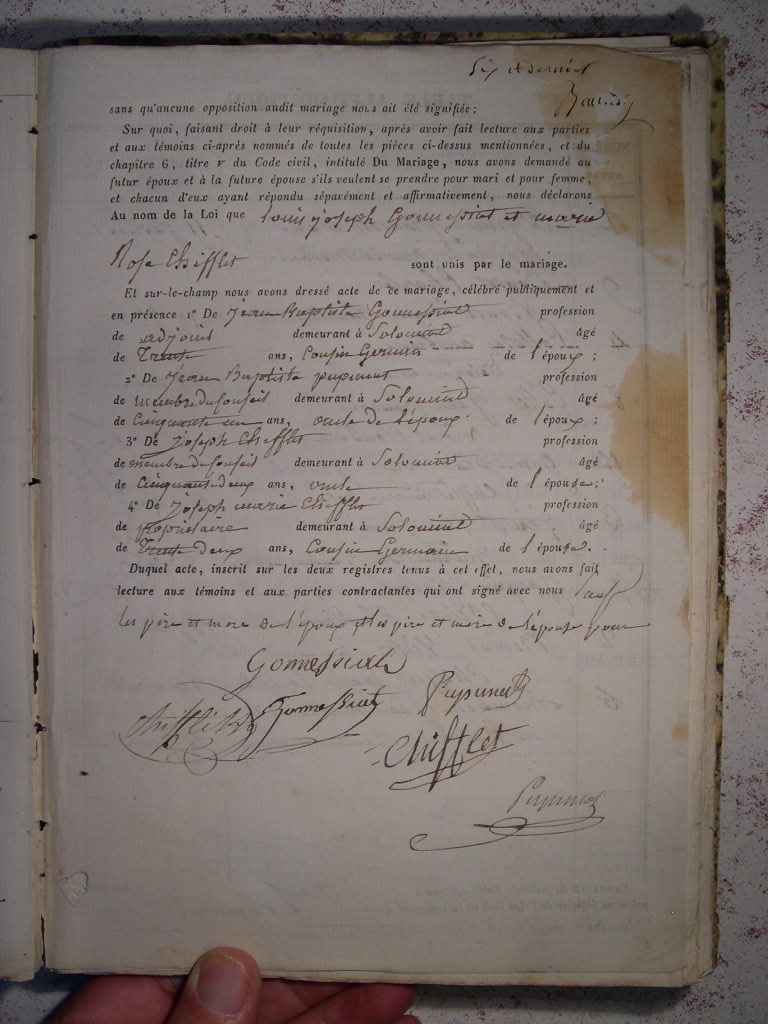 Six et dernier
sans qu'aucune opposition audit mariage nous ait été signifiée ;
Sur quoi, faisant droit à leur réquisition, après avoir fait lecture aux parties
et aux témoins ci-après nommés de toutes les pièces ci-dessus mentionnées, et du
chapitre 6, titre v du Code civil, intitulé Du Mariage, nous avons demandé au
futur époux et à la future épouse s'ils veulent se prendre pour mari et pour femme,
et chacun d'eux ayant répondu séparément et affirmativement, nous déclarons
Au nom de la Loi que louis joseph Gonnessiat et marie
Rose Chifflet sont unis par le mariage.
Et sur-le-champ nous avons dressé acte de ce mariage, célébré publiquement et
en présence 1° De Jean Baptiste Gonnessiat profession
de adjoint demeurant à Solomiat âgé
de Trente ans, Cousin Germin de l'époux ;
2° De Jean Baptiste pupunat profession
de membre du Conseil demeurant à Solomiat âgé
de Cinquante un ans, oncle de l'époux de l'époux ;
3° De joseph Chifflet profession
de membre du Conseil demeurant à Solomiat âgé
de Cinquante deux ans, oncle de l'épouse ;
4° De joseph marie Chifflet profession
de propriétaire demeurant à Solomiat âgé
de Trente deux ans, Cousin Germain de l'épouse.
Duquel acte, inscrit sur les deux registres tenus à cet effet, nous avons fait
lecture aux témoins et aux parties contractantes qui ont signé avec nous sauf
les père et mère de l'époux et les père et mère de l'épouse pour
Gonnessiat
Pupunat
Chifflet Gonnessiat
Chifflet
Pupunat